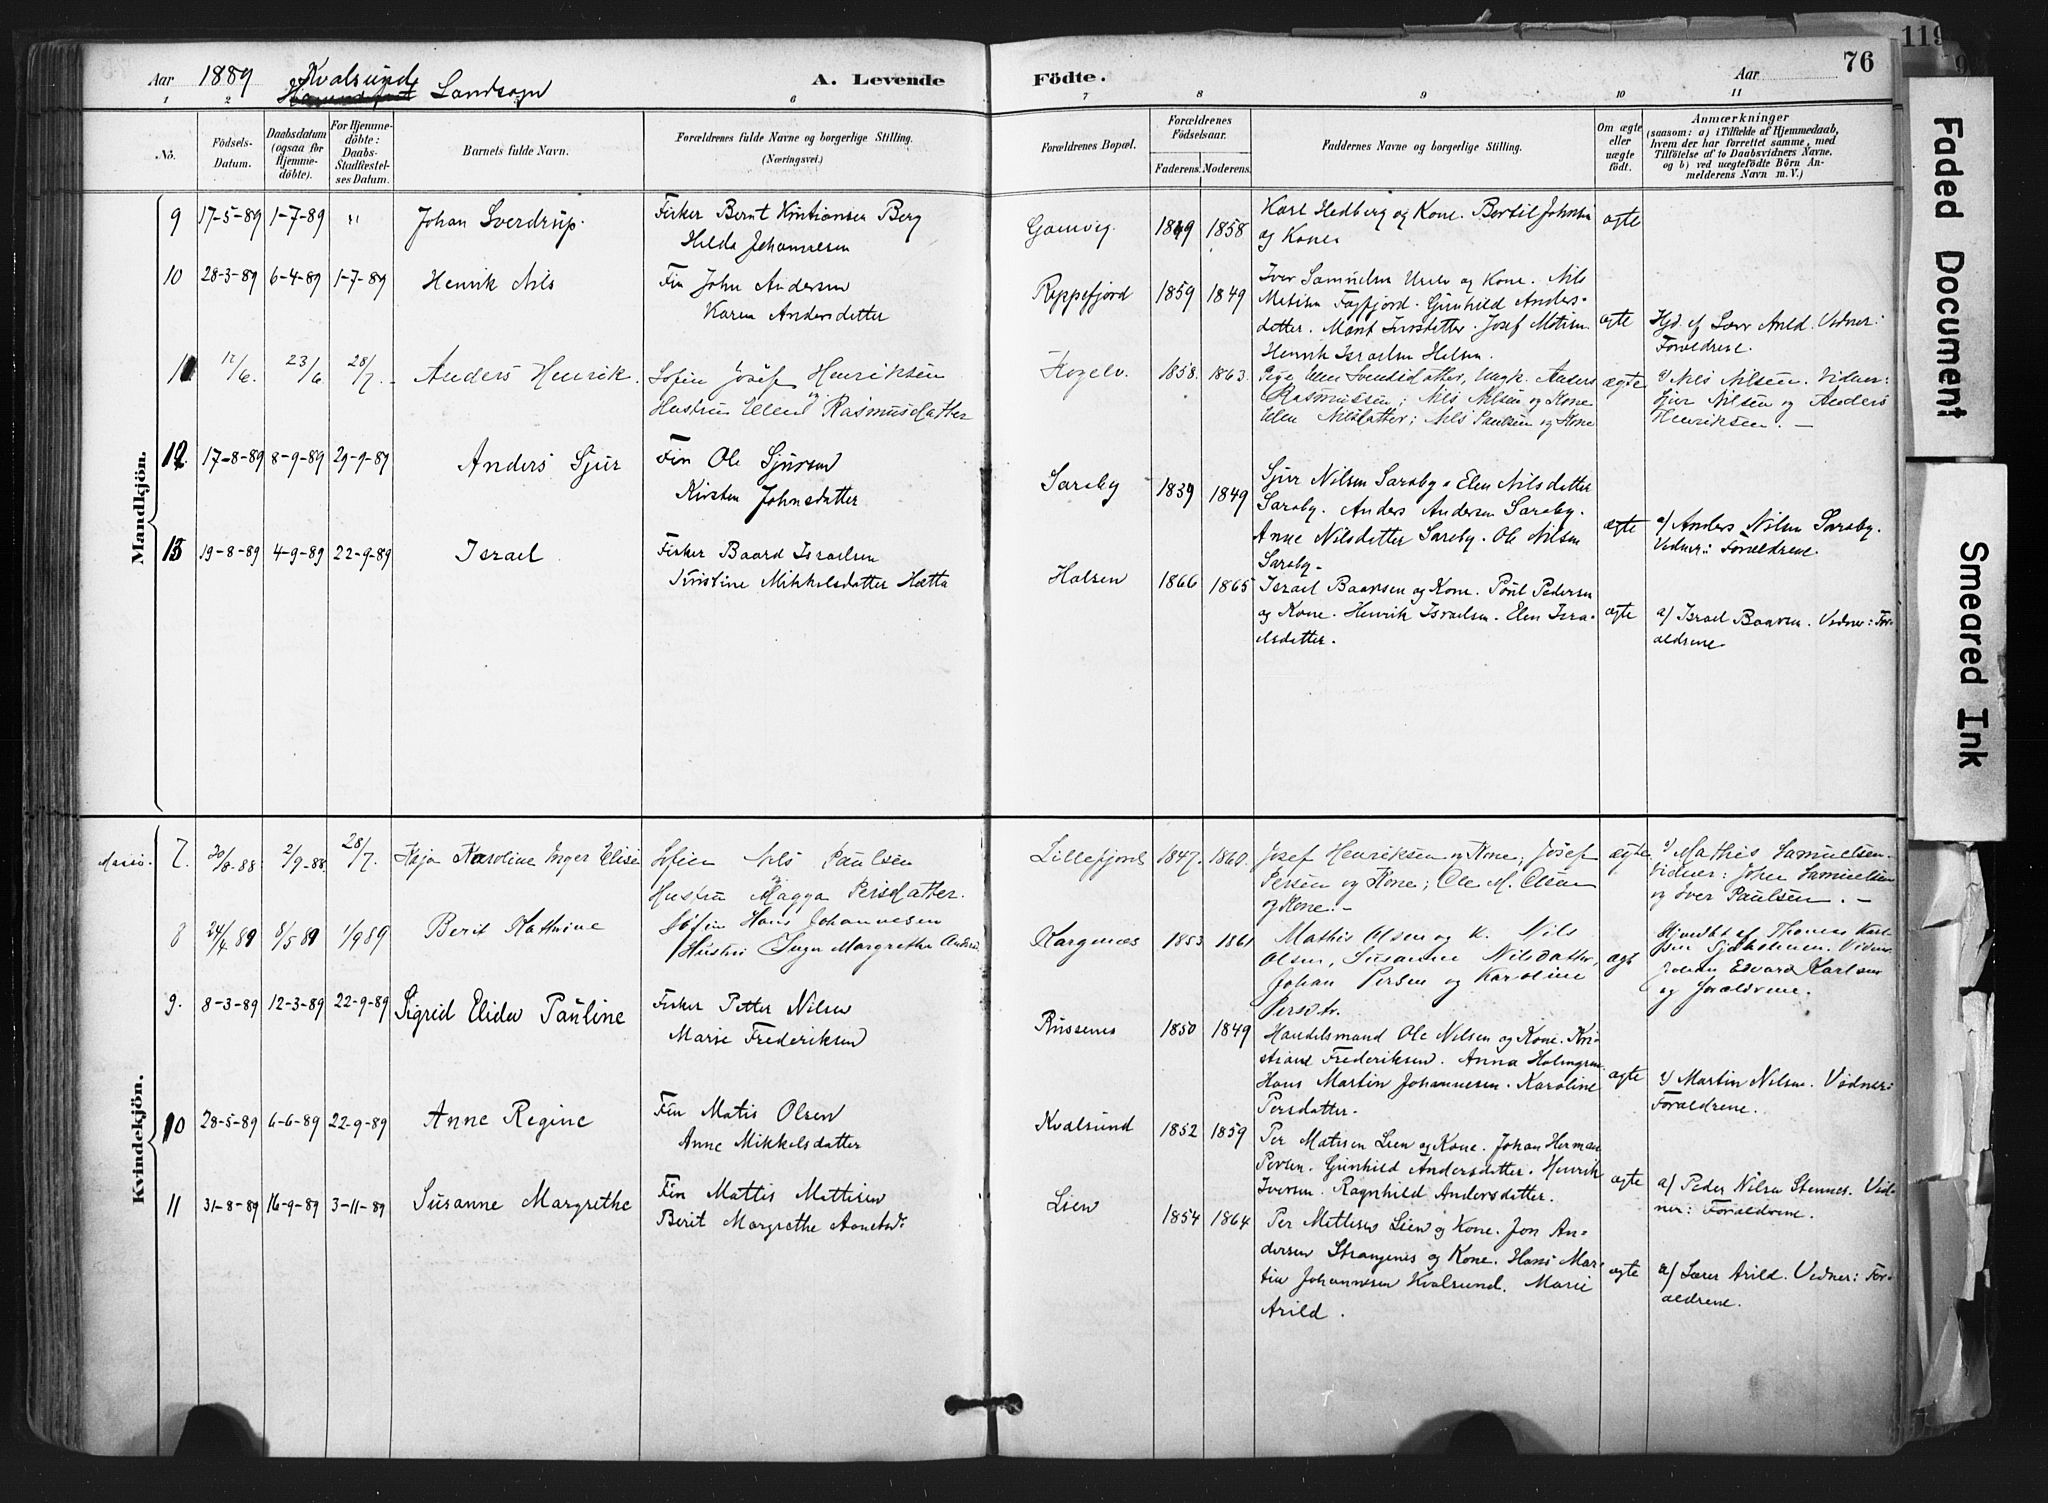 Aar 1889 Kvalsund Landsogn
A. Levende Födte.
Aar 76
119
1 2 6 7 8 9 10 11
No.
Födsels-Datum.
Daabsdatum (ogsaa for Hjemmedöbte).
For Hjemmedöbte: Daabs-Stadfæstelses Datum.
Barnets fulde Navn.
Forældrenes fulde Navne og borgerlige Stilling. (Næringsvei.)
Forældrenes Bopæl.
Forældrenes Födselsaar. Faderens. Moderens.
Faddernes Navne og borgerlige Stilling.
Om ægte eller uægte födt.
Anmærkninger (saasom: a) i Tilfælde af Hjemmedaab, hvem der har forrettet samme, med Tilföielse af to Daabsvidners Navne. og b) ved uægtefödte Börn Anmelderens Navn m. V.)
Mandkjön.
9 17-5-89 1-7-89 " Johan Sverdrup. Fisker Bernt Kristiansen Berg
Hilda Johannesen
Gamvig. 1849 1858 Karl Hedberg og Kone. Bertil Johnsen
og Kone. ægte
10 28-3-89 6-4-89 1-7-89 Henrik Nils Fin John Andersen
Karen Andersdatter
Reppefjord 1859 1849 Iver Samuelsen og Kone. Nils
Matisen Fægfjord. Gunhild Anders-
datter. Marit Iversdatter. Josef Matisen.
Henrik Israelsen Halsen.
ægte Hjd. af Lærer Arild. Vidner:
Forældrene.
11 12/6. 23/6 28/7. Anders Henrik. Søfin Josef Henriksen
og Hustru Ellen Rasmusdatter
Kogelv. 1858. 1863. Pige Elen Svendsdatter, Ungk. Anders
Rasmussen; Nils Nilsen og Kone
Elen Nilsdatter; Nils Paulsen og Kone
ægte a) Nils Nilsen. Vidner:
Sjur Nilsen og Anders
Henriksen. -
12. 17-8-89 8-9-89 29-9-89 Anders Sjur Fin Ole Sjursen
Kirsten Johnsdatter
Saraby 1839 1849 Sjur Nilsen Saraby. Elen Nilsdatter
Saraby. Anders Andersen Saraby.
Anne Nilsdatter Saraby. Ole Nilsen
Saraby.
ægte a) Anders Nilsen Saraby.
Vidner: Forældrene.
13 19-8-89 4-9-89 22-9-89 Israel Fisker Baard Israelsen
Kristine Mikkelsdatter Hætta
Halsen 1866 1865 Israel Baarsen og Kone. Poul Pedersen
og Kone. Henrik Israelsen. Elen Isra-
elsdatter.
ægte a) Israel Baarsen. Vidner: For-
ældrene
Kvindekjön.
7. 20/8-88 2/9-88. 28/7. Kaja Karoline Inger Elise Søfin Nils Paulsen
og Hustru Magga Persdatter.
Lillefjord 1847. 1860. Josef Henriksen og Kone; Josef
Persen og Kone; Ole M. Olsen
og Kone. -
ægte a) Mathis Samuelsen.
Vidner: John Samuelsen
og Iver Paulsen. -
8 24/4 89 8/5 89 1/9 89 Berit Kathrine Søfin Hans Johannesen
Hustru Inga Margrethe Andersd.
Kargenæs 1853 1861 Mathis Olsen og K. Nils
Olsen, Susanne Nilsdatter,
Johan Persen og Karoline
Persdtr.
ægt Hjmdbt af Thomas Karl-
sen Sjåholmen. Vidner
Johan Edvard Karlsen
og Forældrene.
9. 8-3-89 12-3-89 22-9-89 Sigrid Elida Pauline Fisker Petter Nilsen
Marie Frederiksen
Russenes 1850 1849 Handelsmand Ole Nilsen og Kone. Kri-
stiane Frederiksen. Anna Holmgren.
Hans Martin Johannesen. Karoline
Persdatter.
ægte a) Martin Nilsen. Vidner:
Forældrene.
10 28-5-89 6-6-89 22-9-89 Anne Regine Fin Matis Olsen
Anne Mikkelsdatter
Kvalsund 1852 1859 Per Matisen Lien og Kone. Johan Herman
Persen. Gunhild Andersdatter. Henrik
Iversen. Ragnhild Andersdatter.
ægte a) Peder Nilsen Stennes. Vid-
ner: Forældrene.
11 31-8-89 16-9-89 3-11-89 Susanne Margrethe Fin Mattis Mattisen
Berit Margrethe Aanetsd.
Lien 1854 1864 Per Mattisen Lien og Kone. Jon An-
dersen Strangenes og Kone. Hans Mar-
tin Johannesen Kvalsund. Marie
Arild.
ægte a) Lærer Arild. Vidner: For-
ældrene.
Faded Document
Smeared Ink